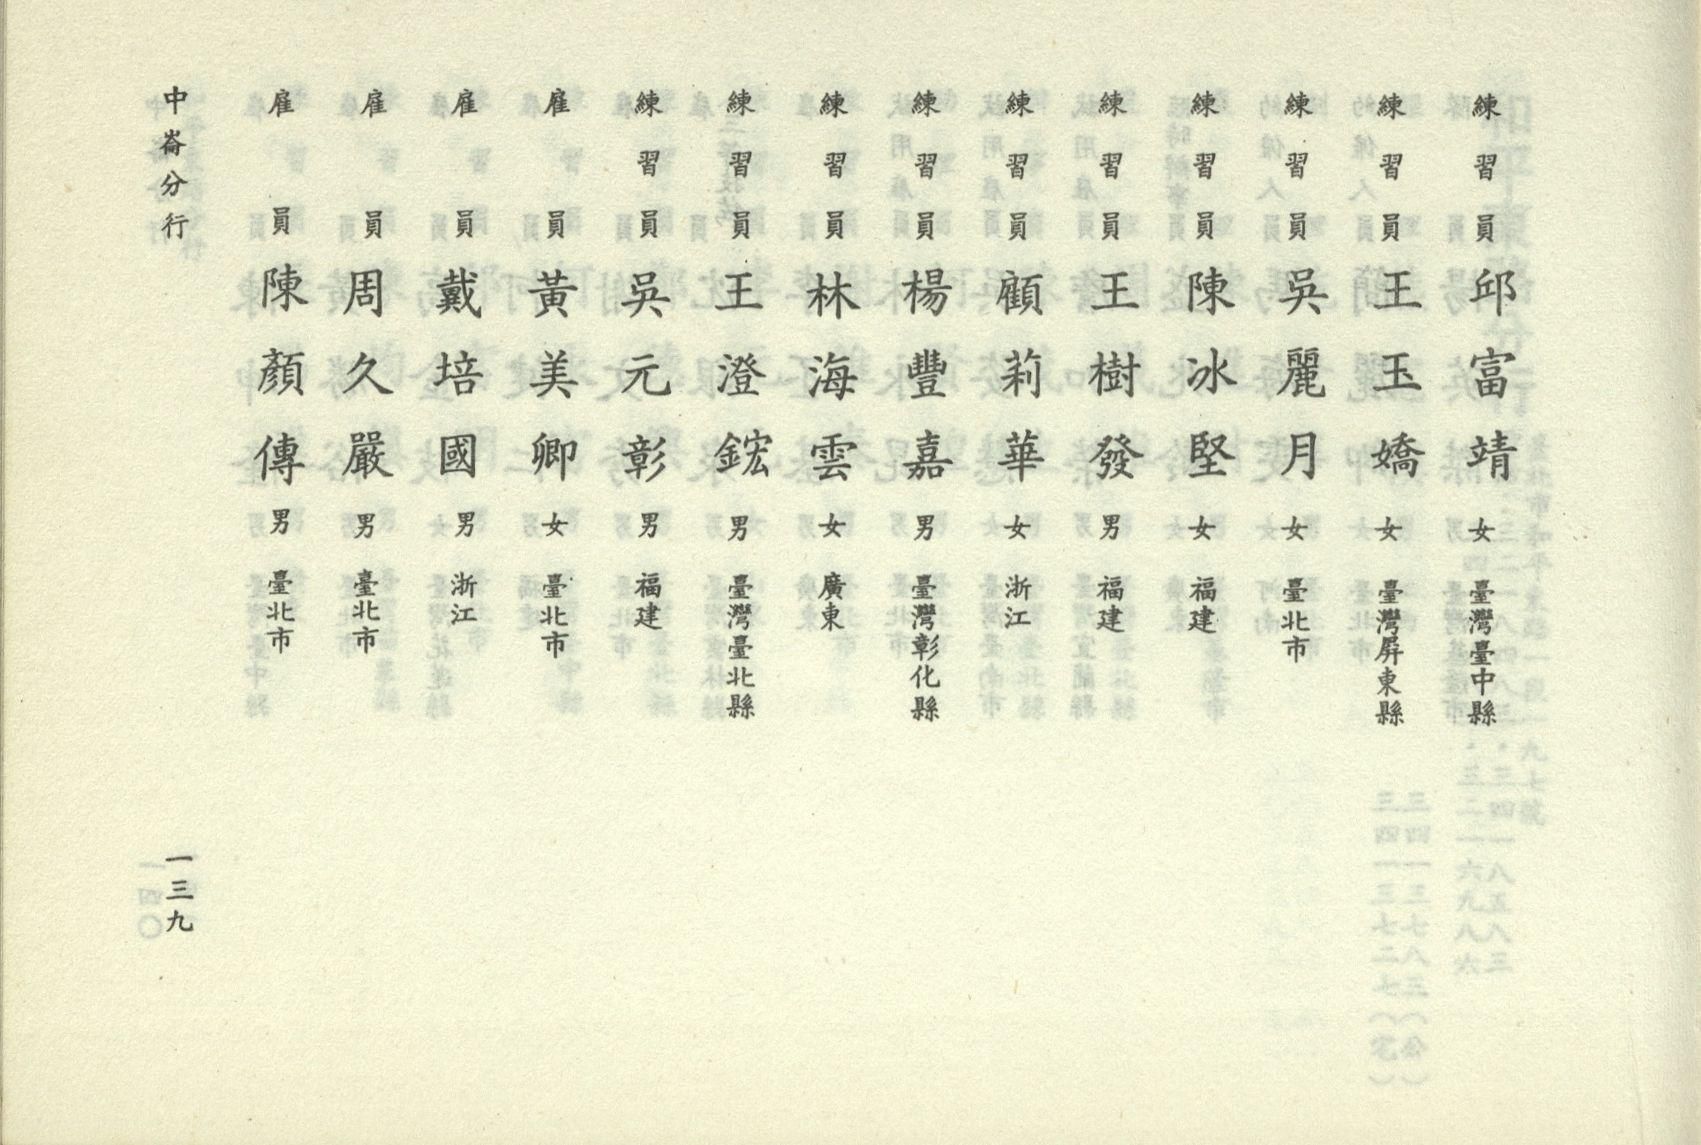 練習員 邱富靖 女 臺灣臺中縣
練習員 王玉嬌 女 臺灣屏東縣
練習員 吳麗月 女 臺北市
練習員 陳冰堅 女 福建
練習員 王樹發 男 福建
練習員 顧莉華 女 浙江
練習員 楊豐嘉 男 臺灣彰化縣
練習員 林海雲 女 廣東
練習員 王澄鋐 男 臺灣臺北縣
練習員 吳元彰 男 福建
雇員 黃美卿 女 臺北市
雇員 戴培國 男 浙江
雇員 周久嚴 男 臺北市
雇員 陳顏傳 男 臺北市
中崙分行 一三九